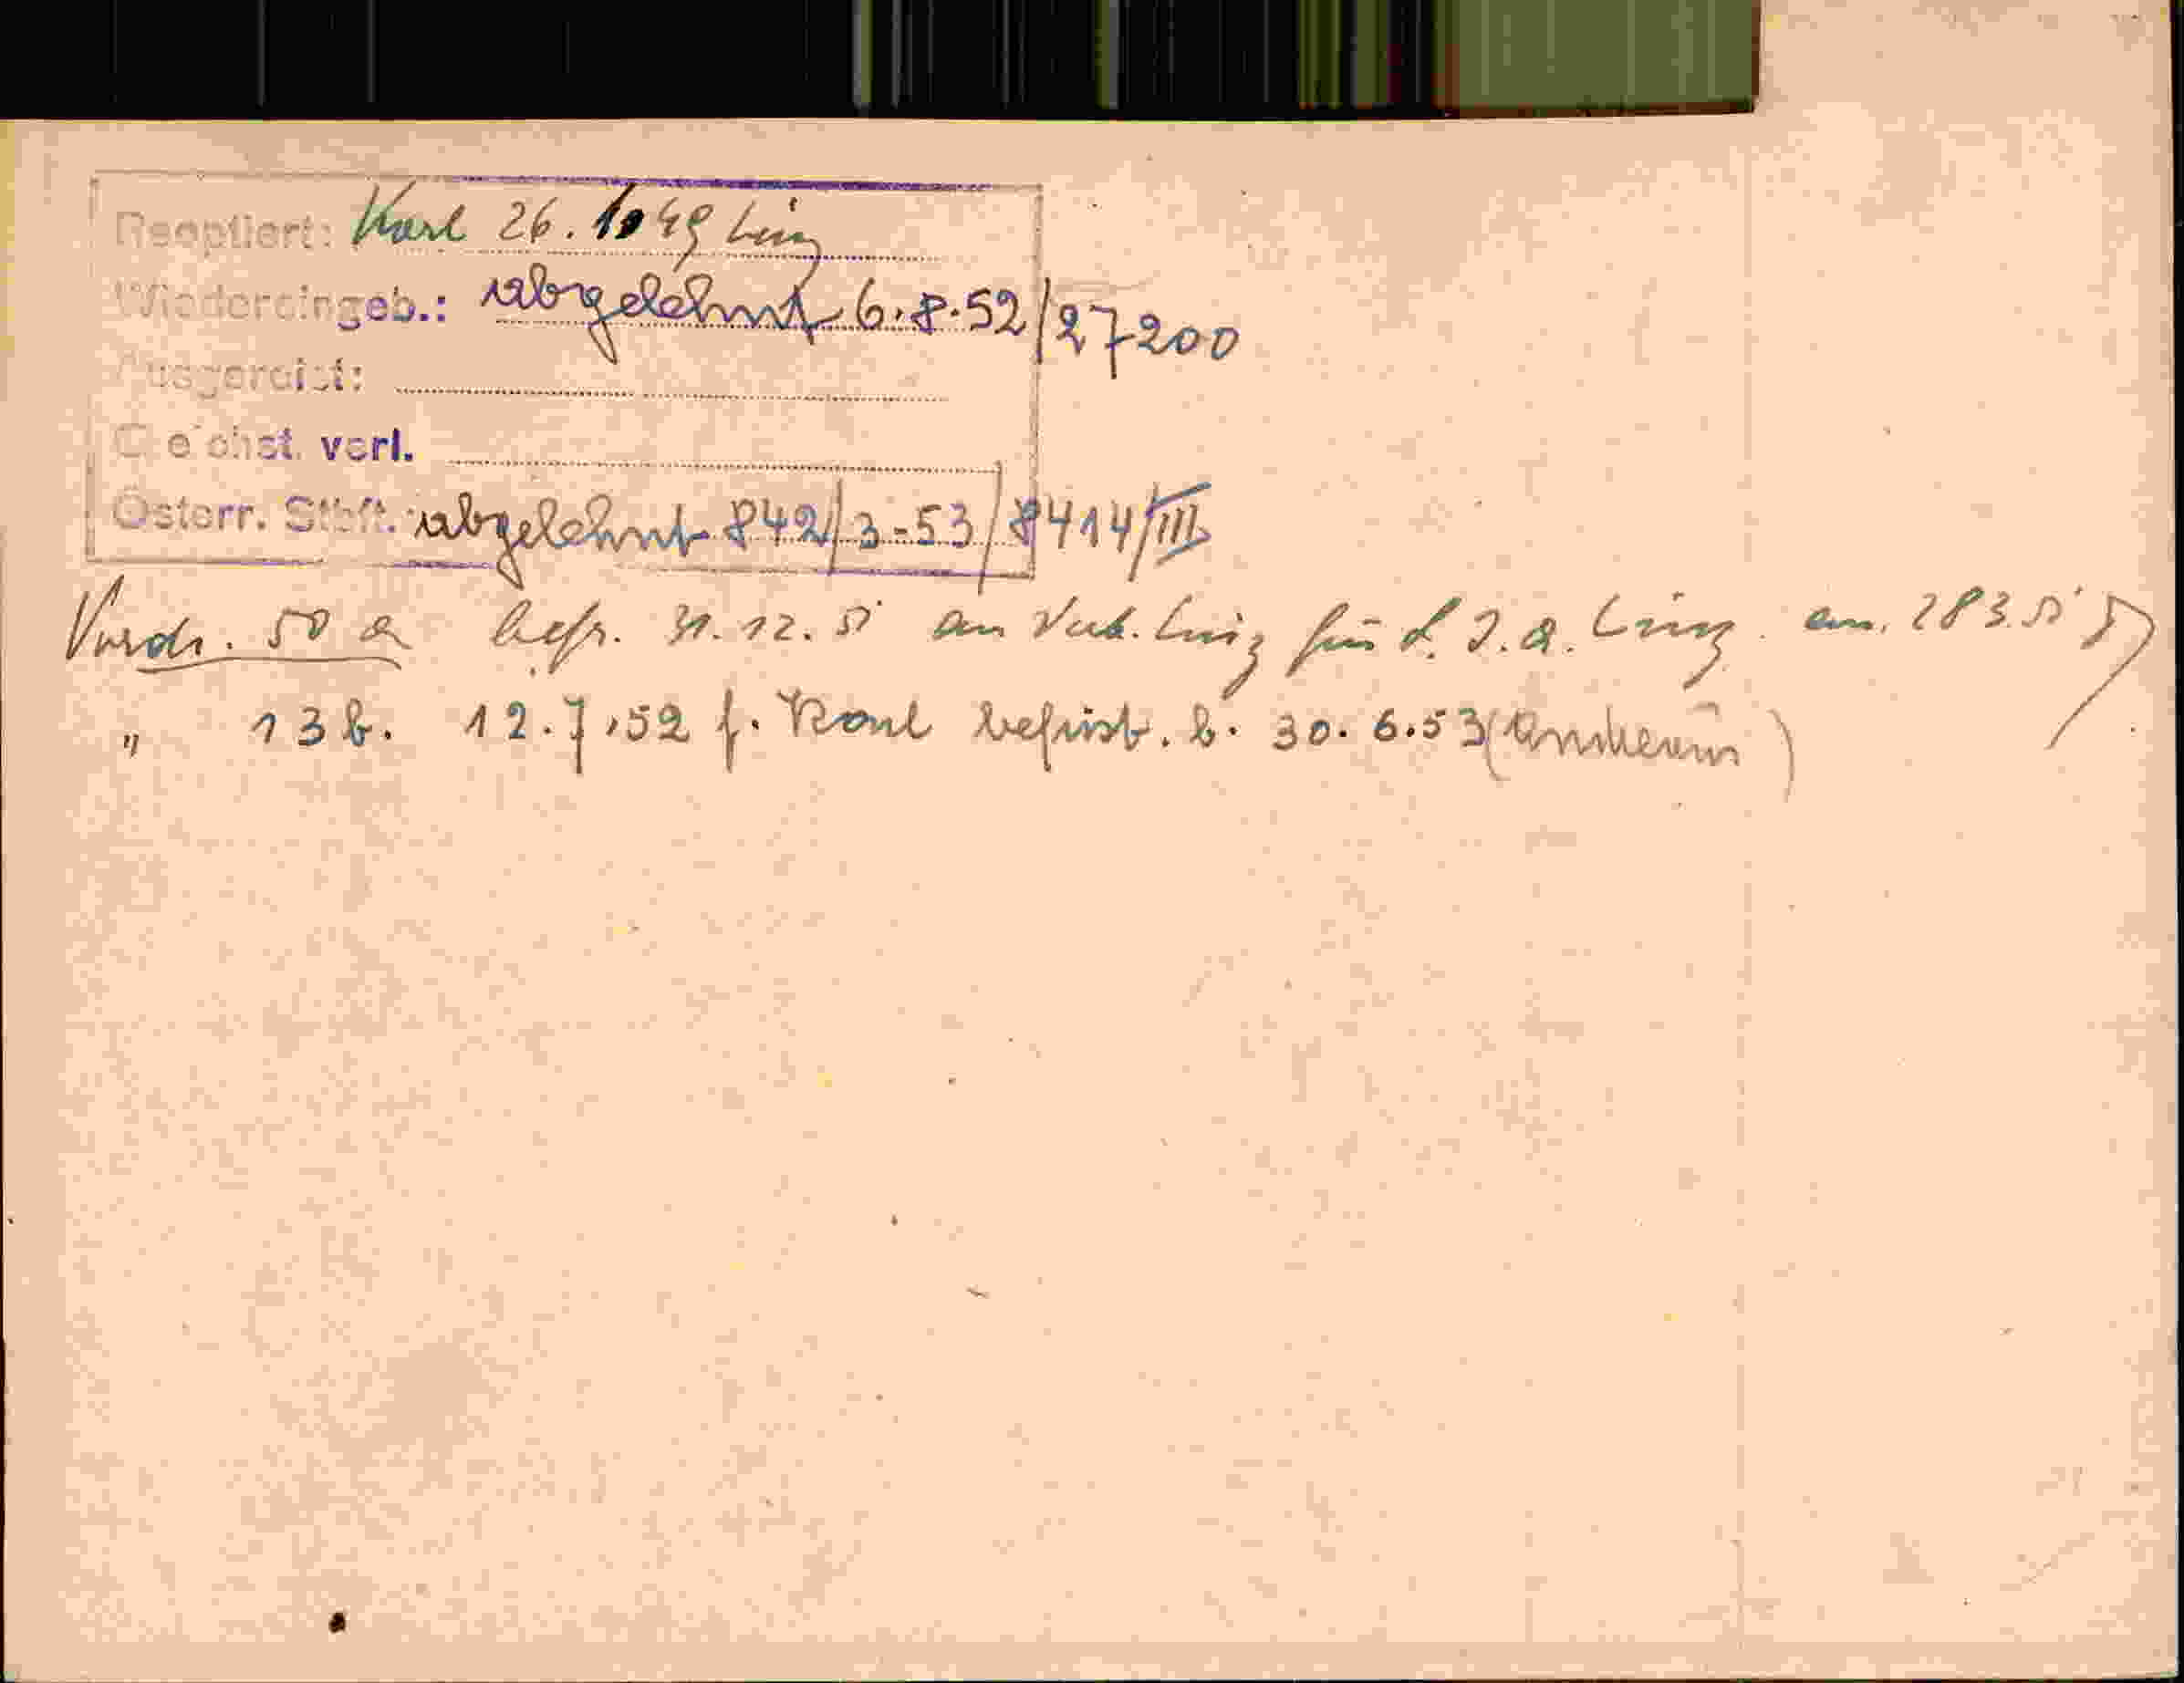 Reoptiert: Karl 26.10 49 Linz
Wiedereingeb.: abgelehnt 6.8.52/27200
Ausgereist:
Gleichst. verl.
Österr. Stbft. abgelehnt 842/3-53/8414/III
Vordr. 50 a befr. 31.12.51 an Verb. Linz für d. I.A. Linz. am. 283.51
" 13 b. 12.7.52 f. Karl befrist. b. 30.6.53